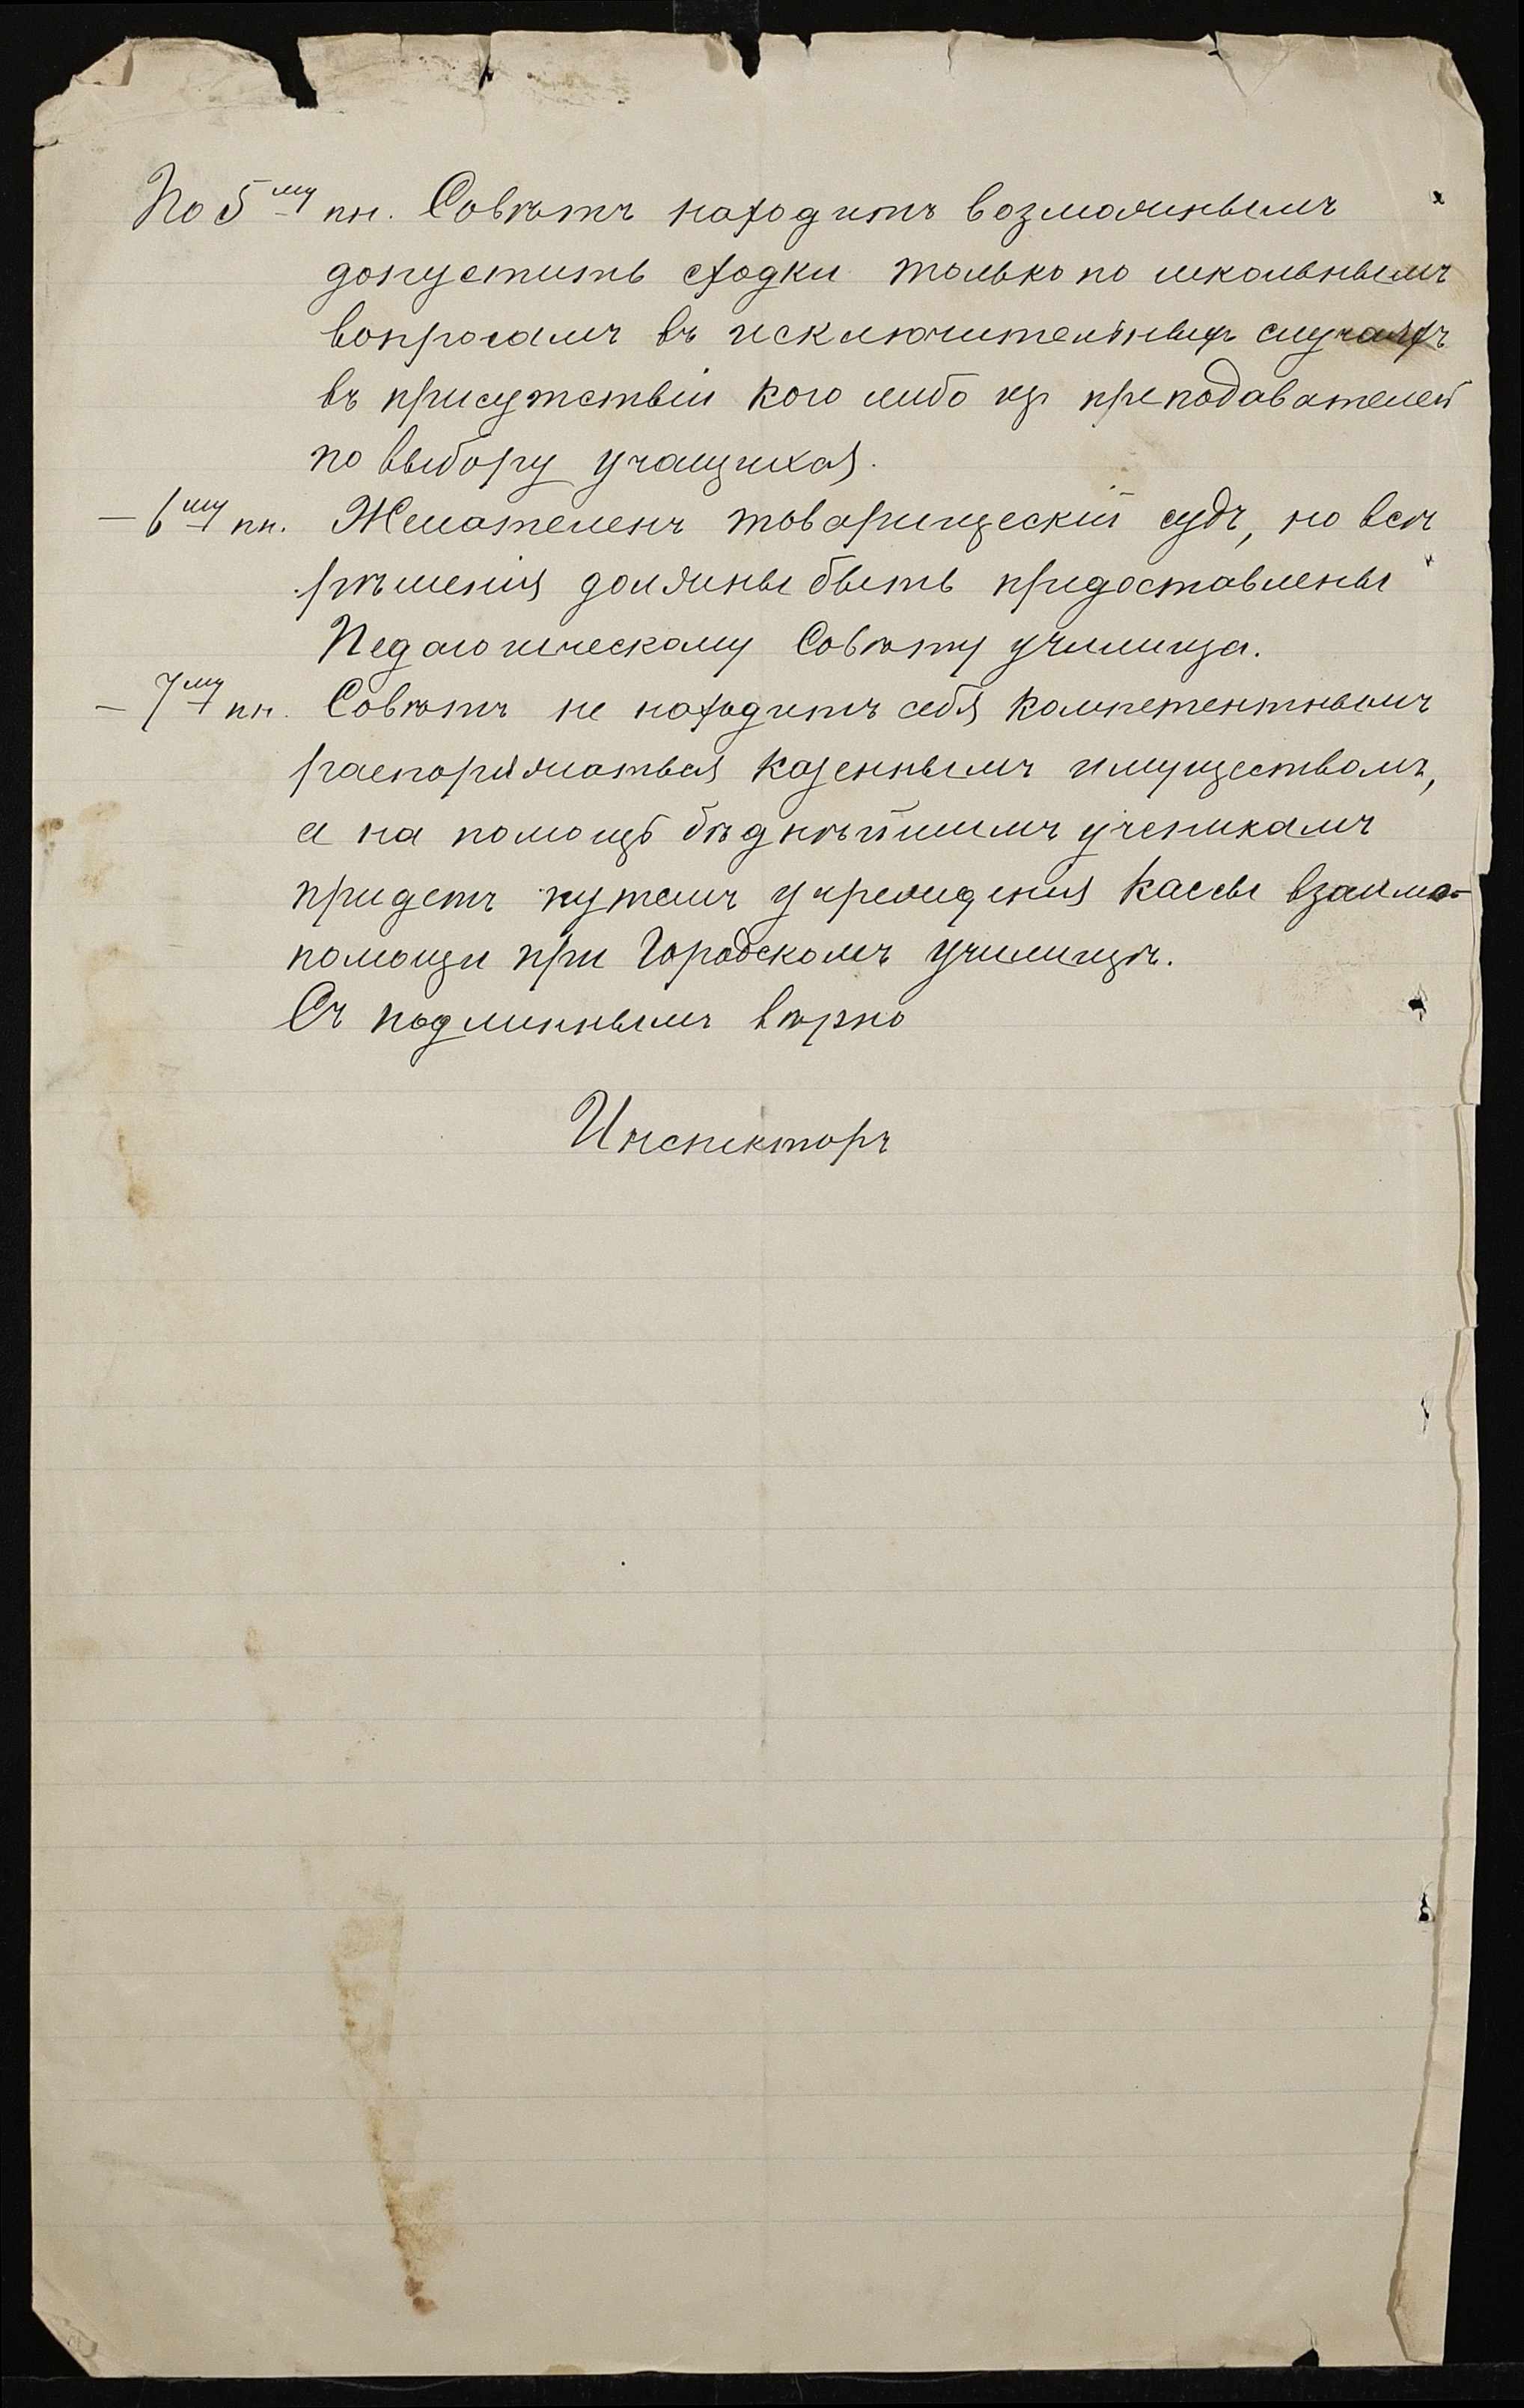 По 5му пн. Совѣтъ находитъ возможнымъ
допустить сходки только по школьнымъ
вопросамъ въ исключительныхъ случаяхъ
въ присутствіи кого либо изъ преподавателей
по выбору учащихся.
— 6му пн. Желателенъ товарищескій судъ, но всѣ
рѣшенія должны быть предоставлены
Педагогическому Совѣту училища.
— 7му пн. Совѣтъ не находитъ себя компетентнымъ
распоряжаться казеннымъ имуществомъ,
а на помощь бѣднѣйшимъ ученикамъ
придетъ путемъ учрежденія кассы взаимо-
помощи при Городскомъ училищѣ.
Съ подлиннымъ вѣрно
Инспекторъ